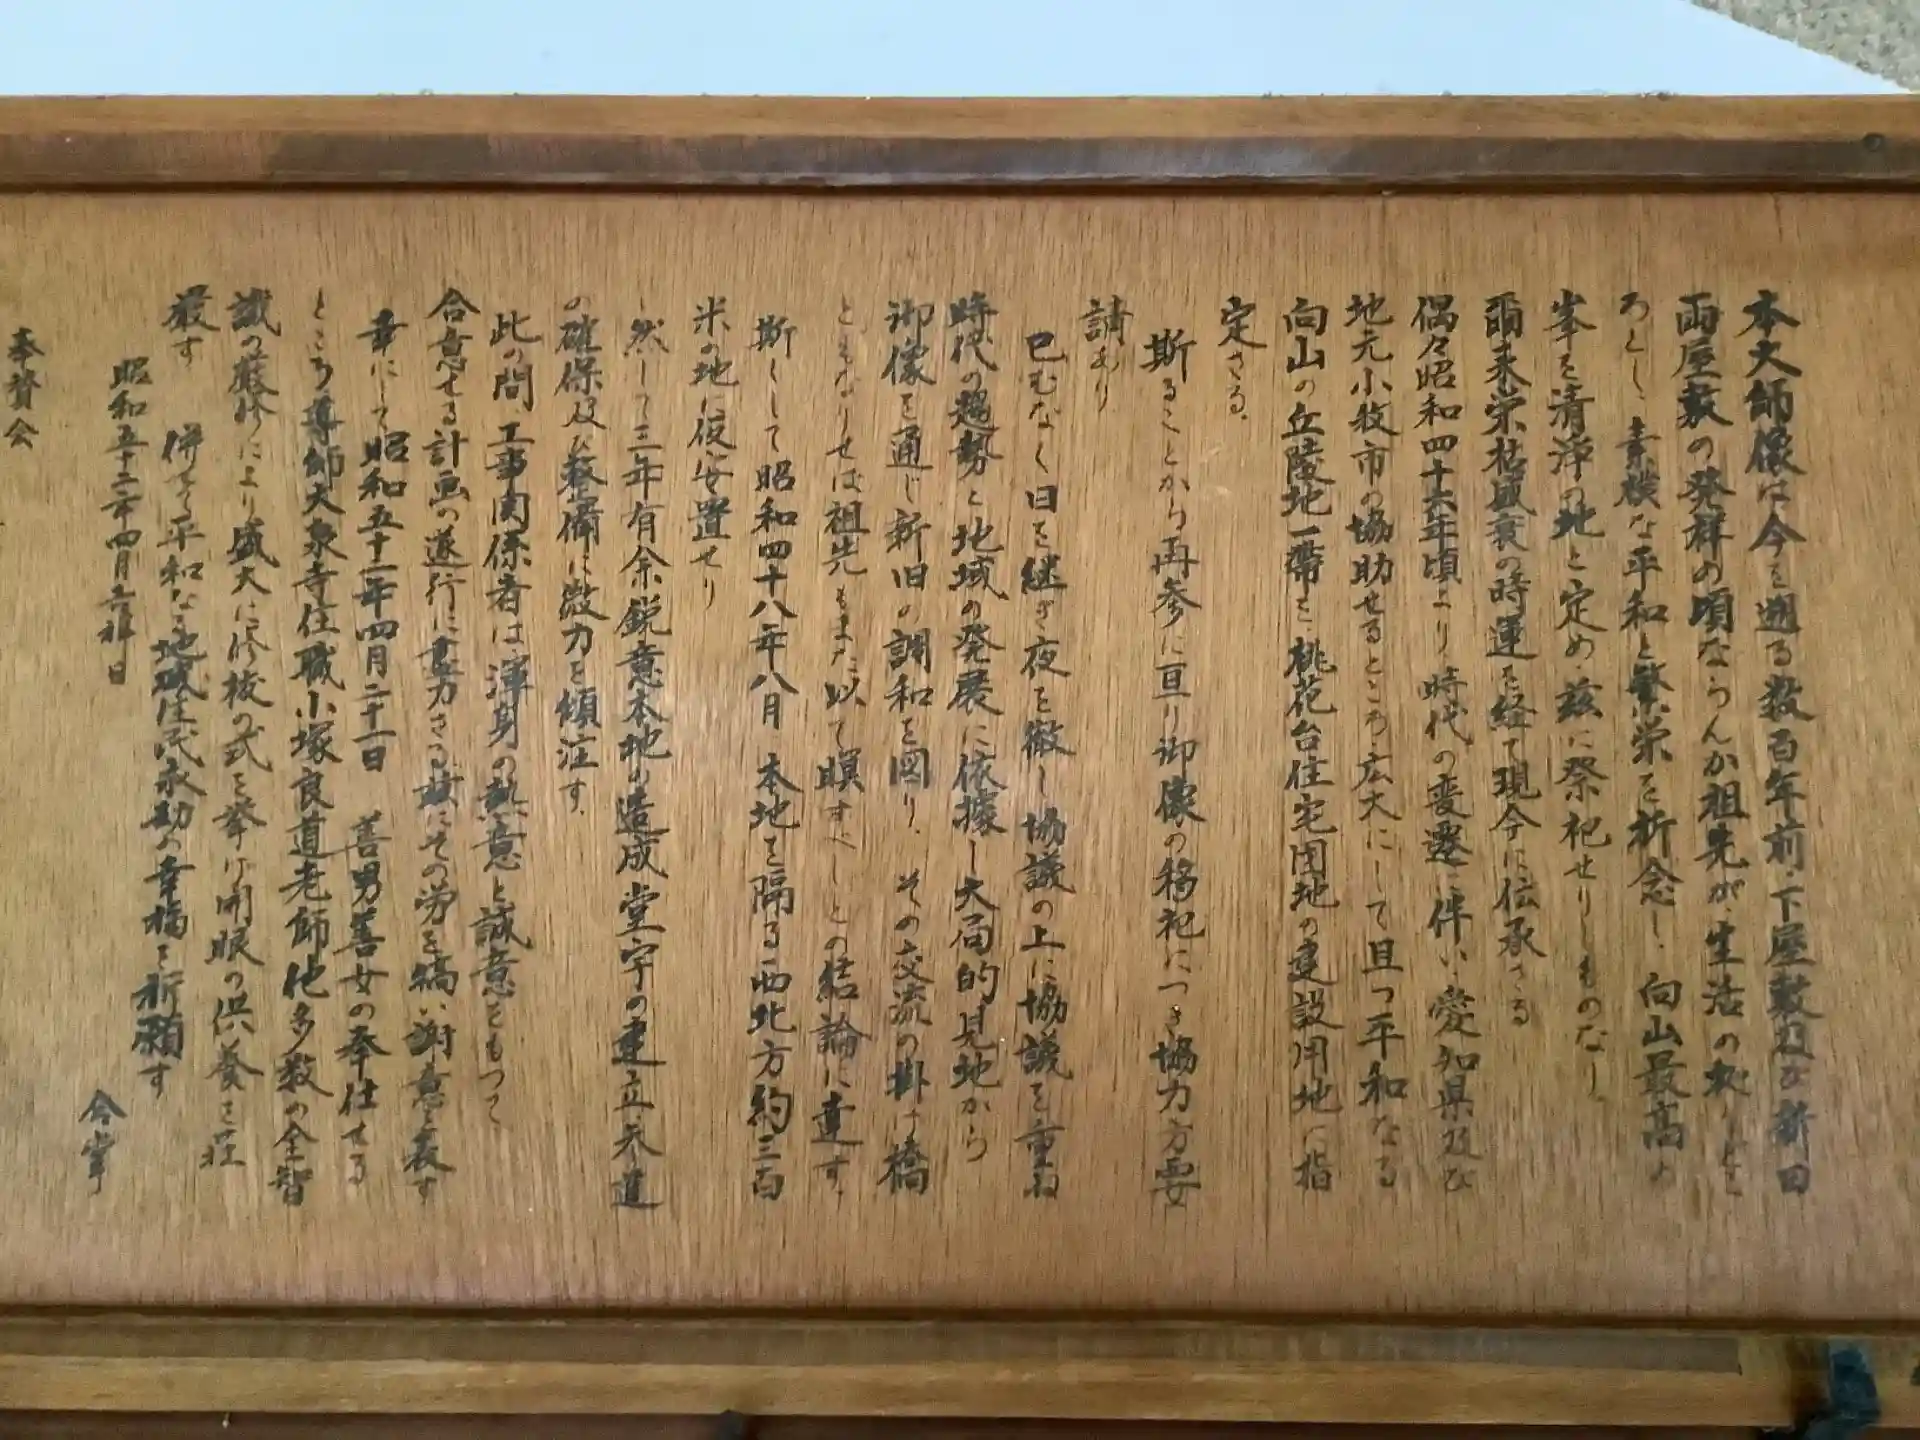 本大師像は今を遡る数百年前、下屋敷及び新田
両屋敷の発祥の頃ならんか祖先が、生活の拠りどこ
ろとし、素朴な平和と繁栄を祈念し、向山最高の
峯を清浄の地と定め、茲に祭祀せりしものなし
爾来栄枯盛衰の時運を経て現今に伝承さる
偶々昭和四十六年頃より、時代の変遷に伴い、愛知県及び
地元小牧市の協助せるところ、広大にして且つ平和なる
向山の丘陵地一帯を、桃花台住宅団地の建設用地に指
定さる、
斯ることから再参に亘り御像の移祀につき協力方要
請あり
已むなく日を継ぎ夜を徹し協議の上に協議を重ね
時代の趨勢と地域の発展に依據し大局的見地から
御像を通じ新旧の調和を図り、その交流の掛け橋
ともなりせば祖先もまた以て瞑すべしとの結論に達す、
斯くして昭和四十八年八月 本地を隔る西北方約三百
米の地に仮安置せり
然して三年有余鋭意本地の造成堂宇の建立、参道
の確保及び整備に微力を傾注す、
此の間、工事関係者は、渾身の熱意と誠意をもって
合意せる計画の遂行に尽力さる、茲にその労を犒い謝意を表す
幸にして昭和五十二年四月二十一日 善男善女の奉仕せる
ところ導師大泉寺住職小塚良道老師他多数の全智
識の厳修により盛大に修祓の式を挙げ開眼の供養を荘
厳す 併せて平和なる地域住民永劫の幸福を祈願す
昭和五十二年四月吉祥日
合掌
奉賛会